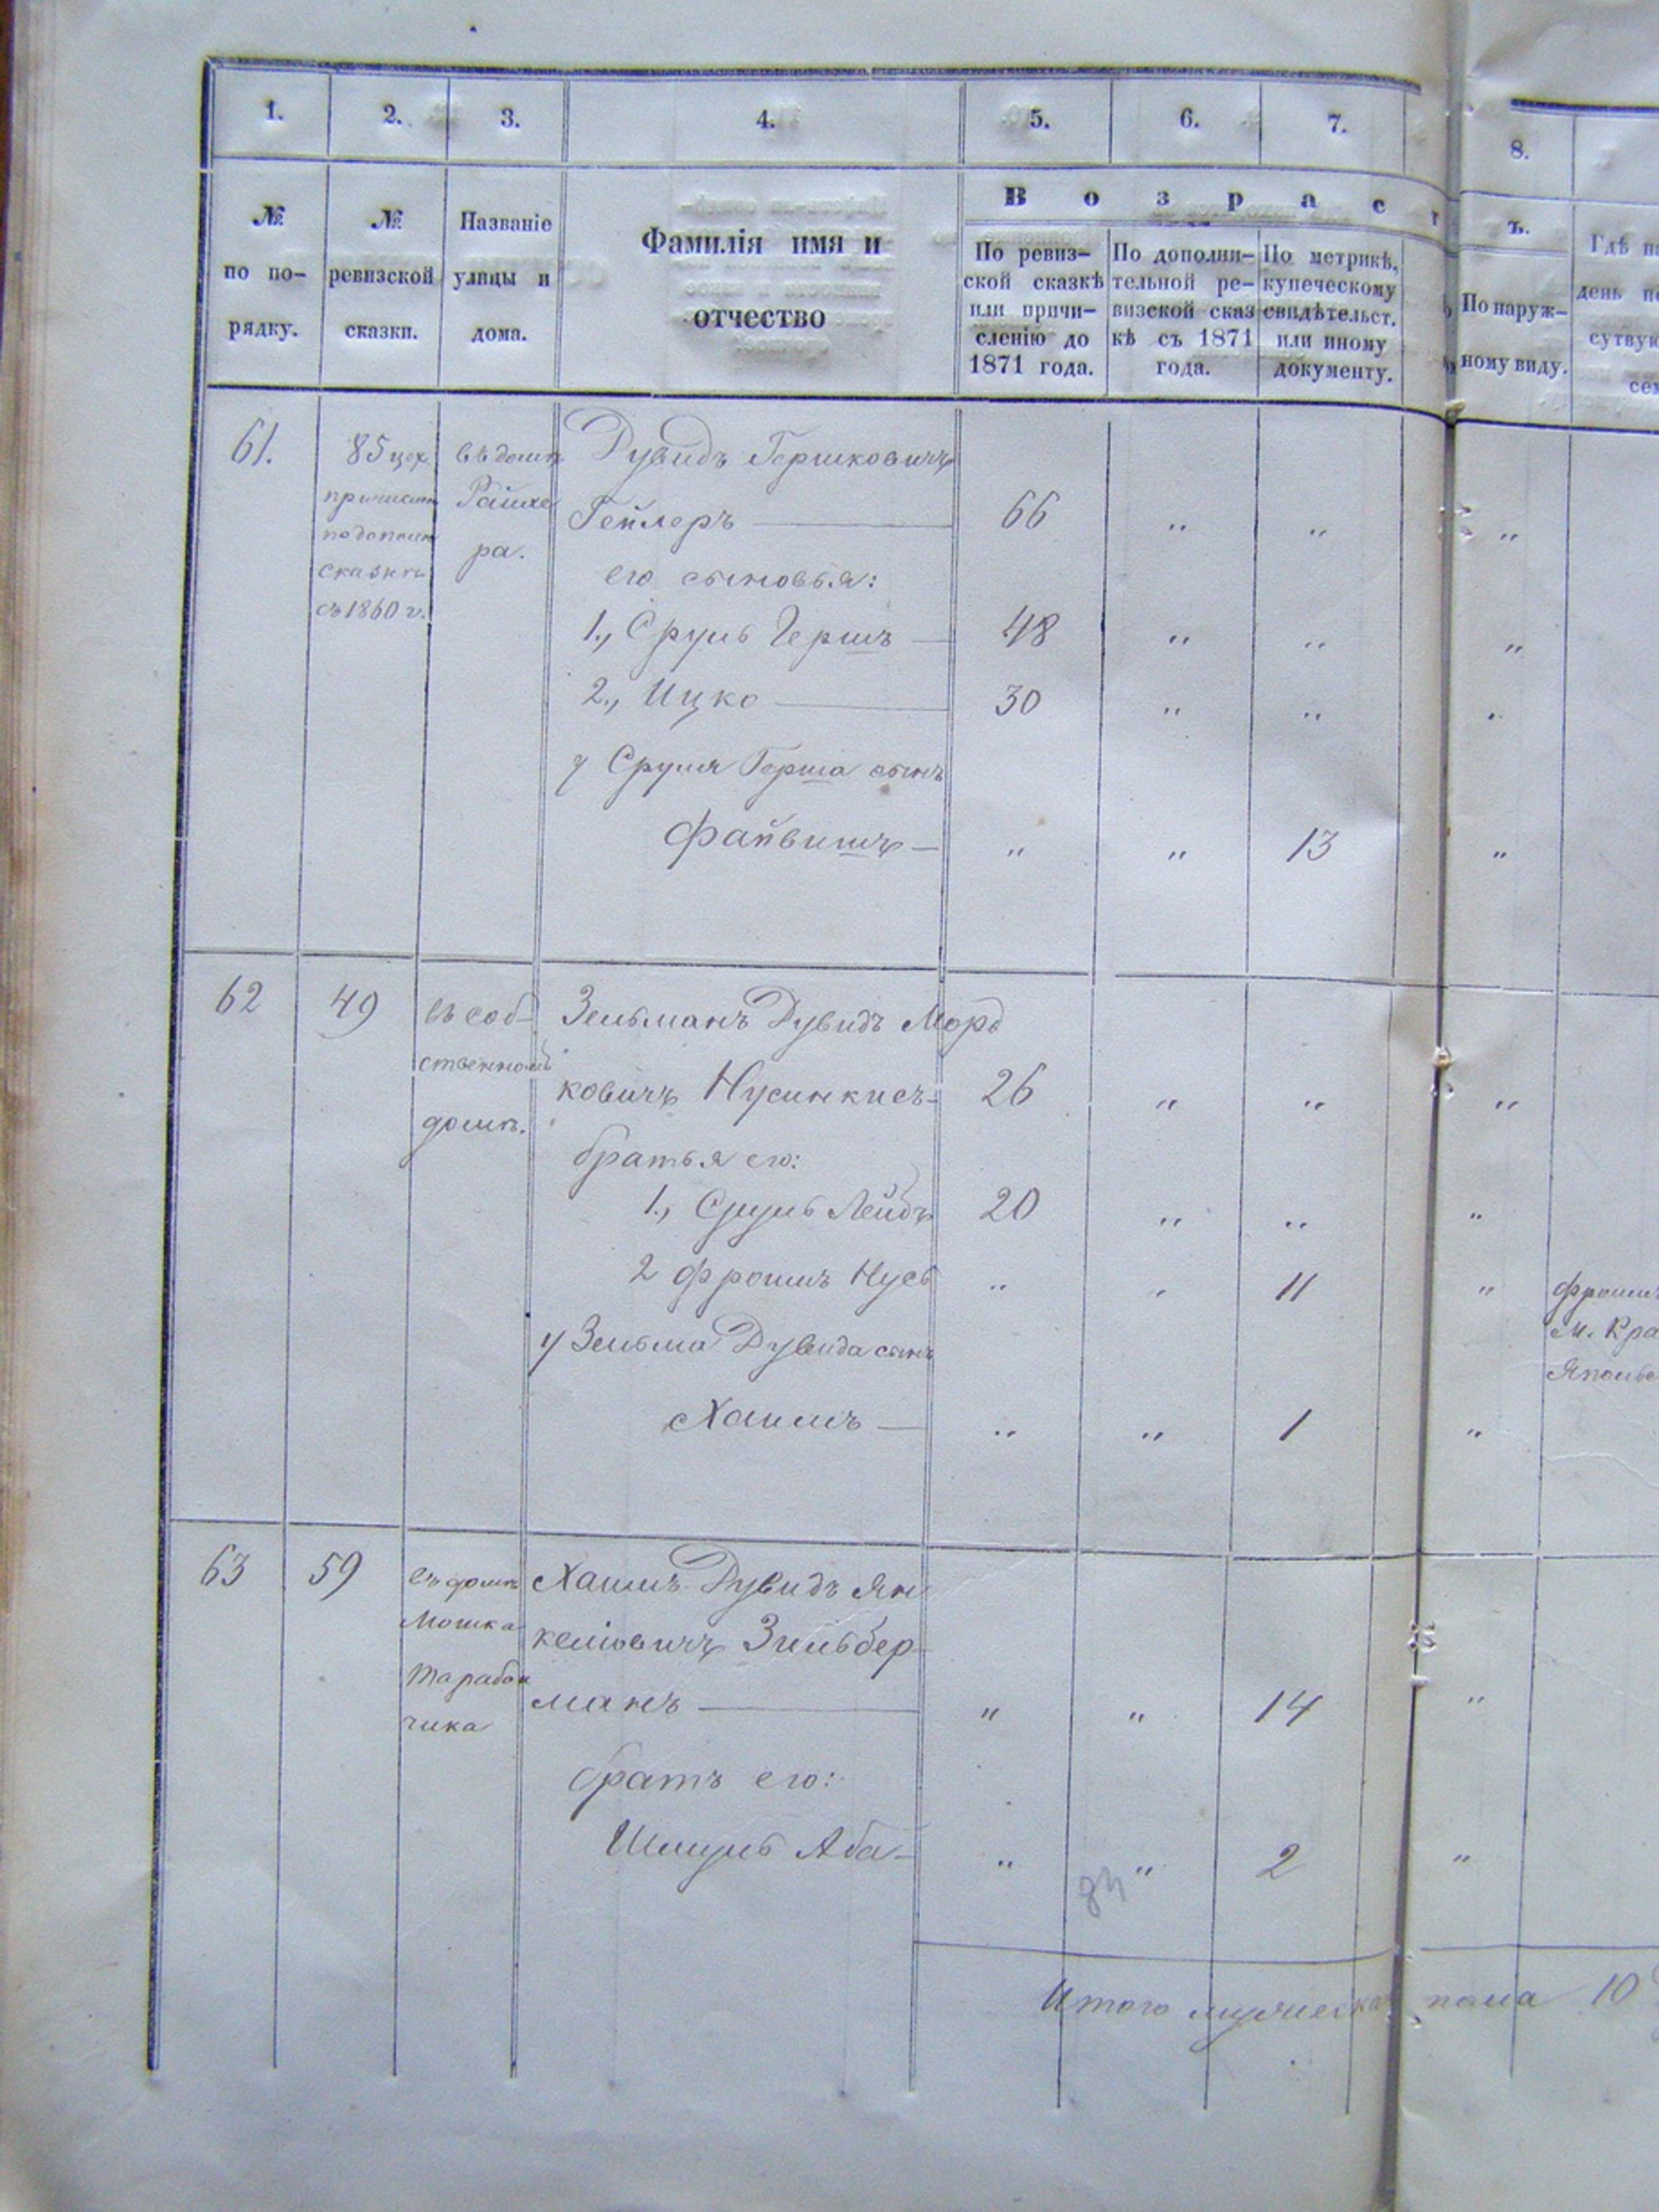 1. 2. 3. 4. 5. 6. 7. 8.
№ по по-
рядку.
№ ревизской
сказки.
Названіе
улицы и
дома.
Фамилія имя и
отчество
В о з р а с т ъ.
По ревиз-
ской сказкѣ
или причи-
сленію до
1871 года.
По дополни-
тельной ре-
визской сказ
кѣ съ 1871
года.
По метрикѣ,
купеческому
свидѣтельст.
или иному
документу.
По наруж-
ному виду.
Гдѣ на
день по
сутвую
сем
61.
85 цех.
причислен
по дополн
сказкѣ
съ 1860 г.
въ домѣ
Райхе
ра.
Дувидъ Гершковичъ
Гейлеръ — 66 „ „ „
его сыновья:
1., Сруль Гершъ — 48 „ „ „
2., Ицко — 30 „ „ „
у Сруля Герша сынъ
Файвишъ — „ „ 13 „
62
49
въ соб-
ственномъ
домѣ.
Зельманъ Дувидъ Морд
ковичъ Нусинкисъ- 26 „ „ „
братья его:
1., Сруль Лейбъ 20 „ „ „
2 Фроимъ Нусъ „ „ 11 „
Фроимъ
м. Кра
Ямполь
у Зельма Дувида сынъ
Хаимъ — „ „ 1 „
63
59
въ домѣ
Мошка
Тарабан
чика
Хаимъ Дувидъ Ян
келіовичъ Зильбер-
манъ — „ „ 14 „
братъ его:
Шмуль Аба- „ „ 2 „
Итого мужеска пола 10